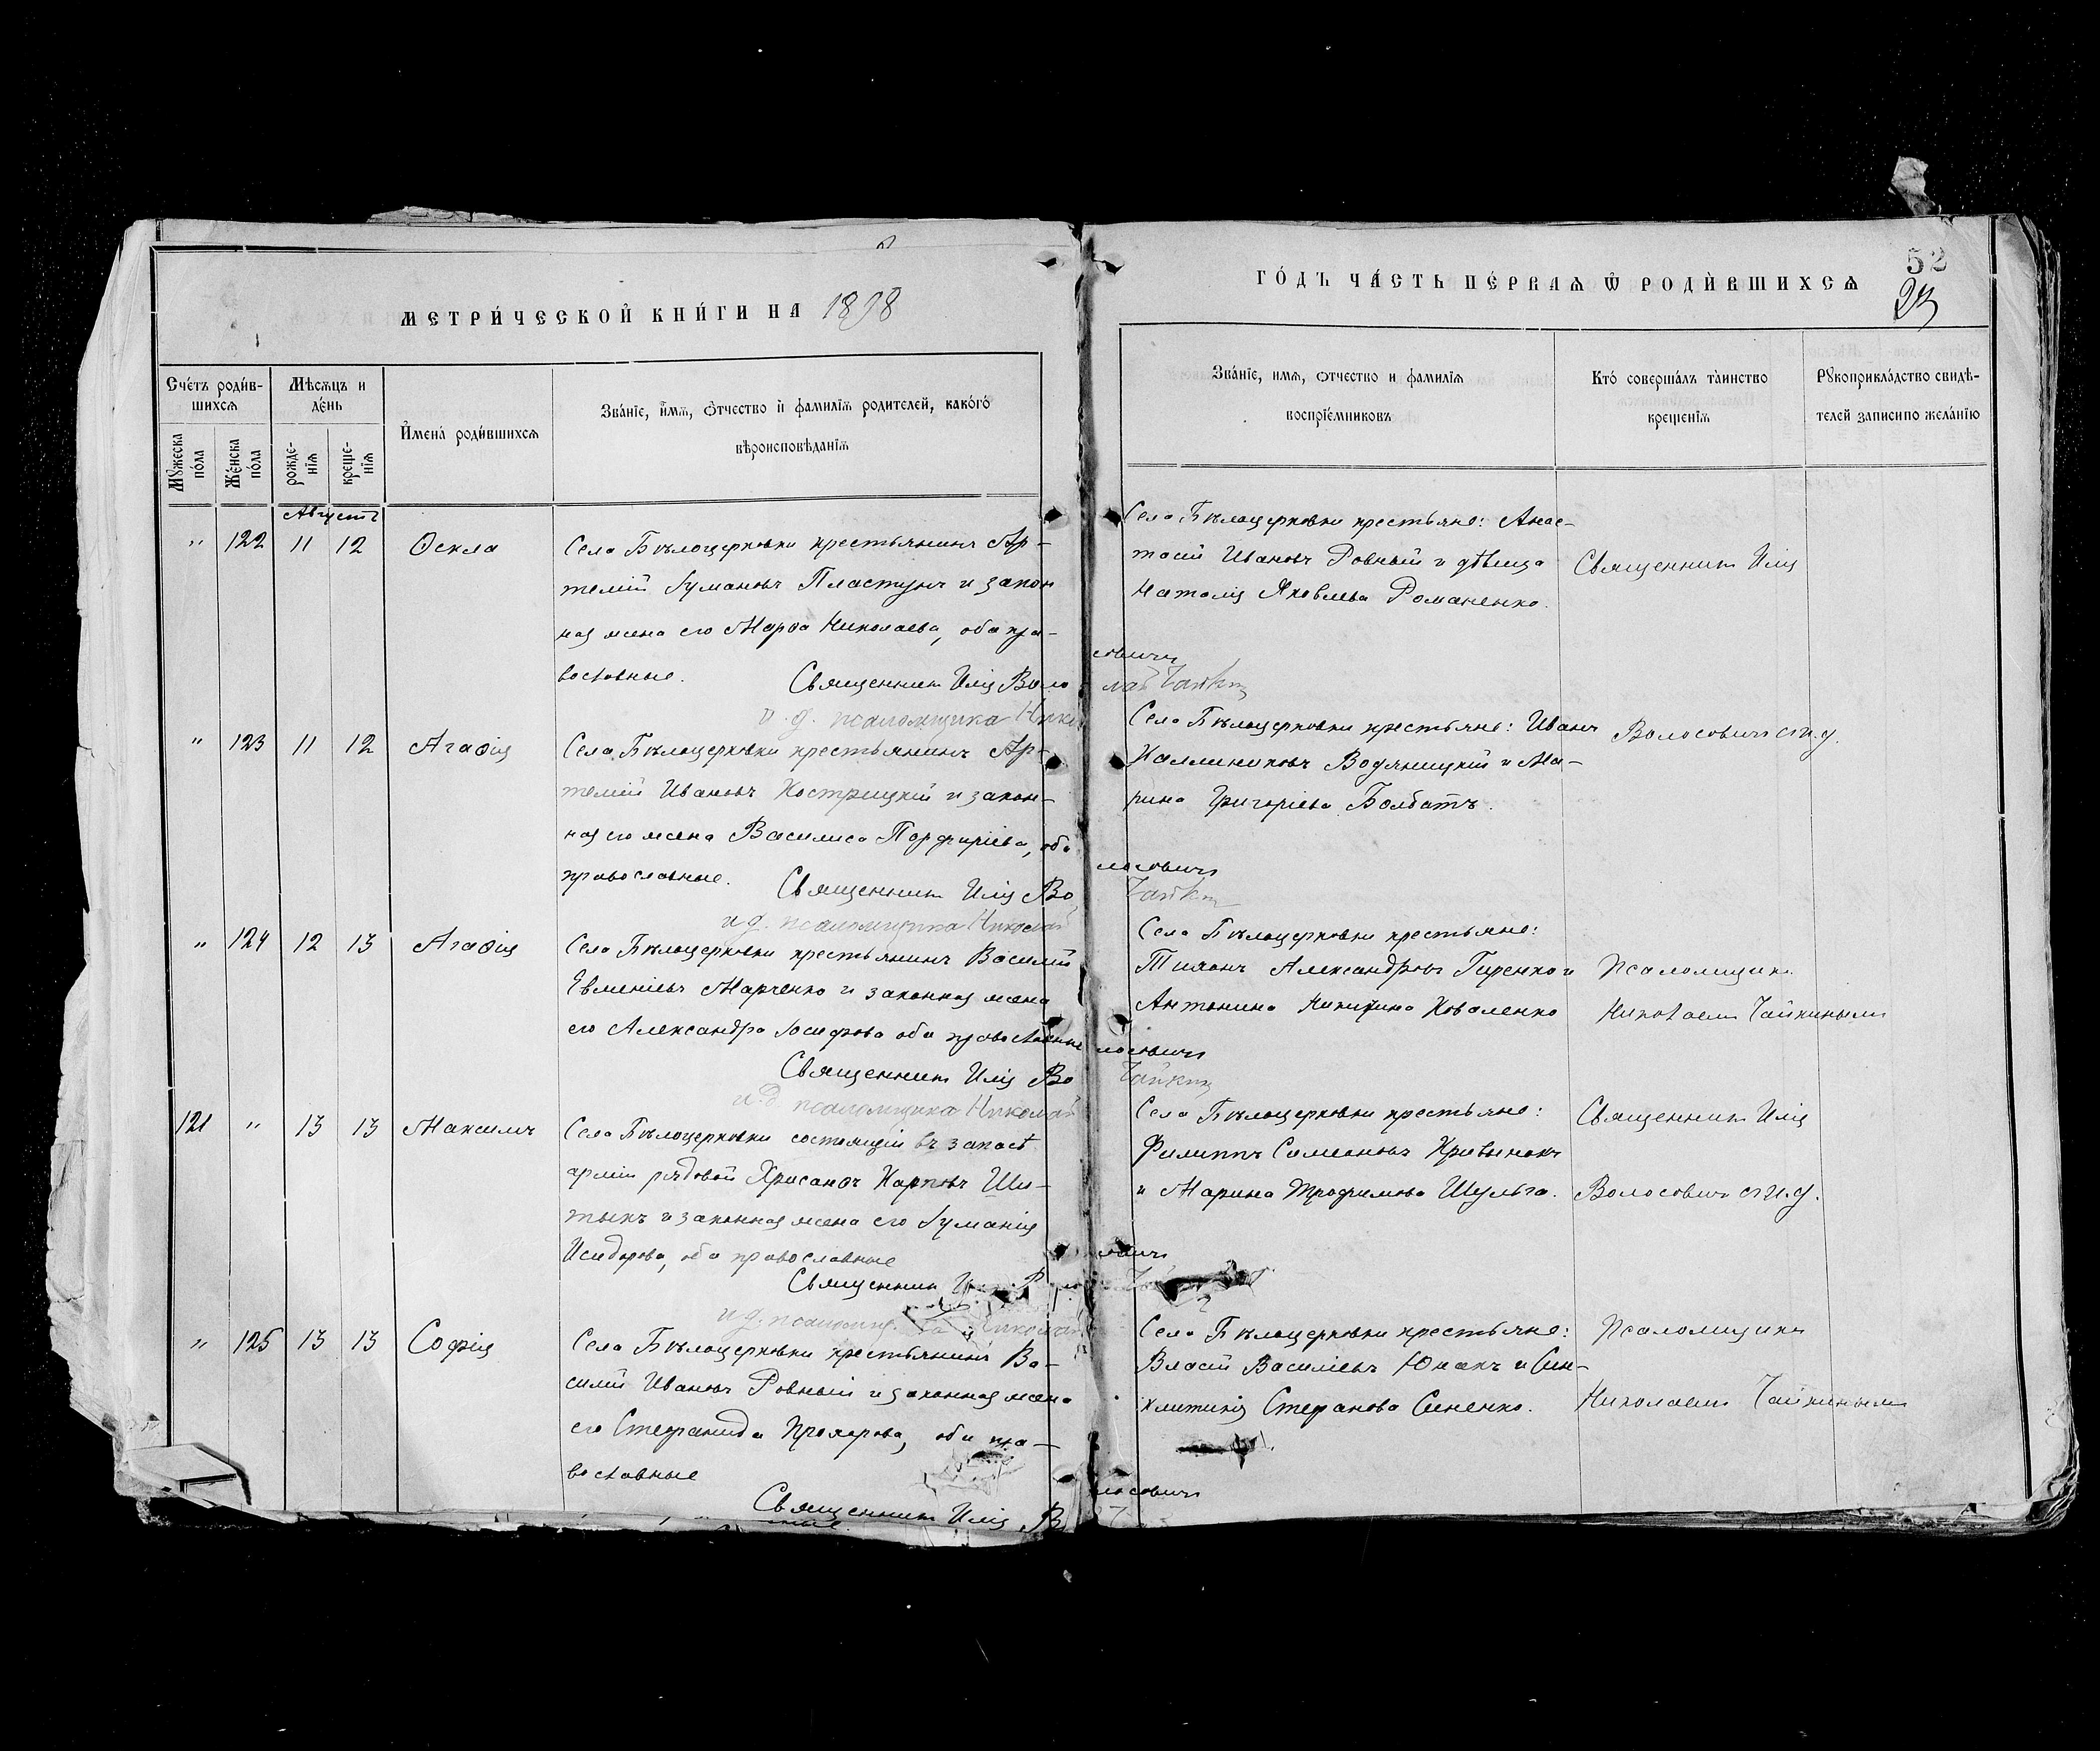 МЕТРИ́ЧЕСКОЙ КНИ́ГИ НА 1898
ГО́ДЪ ЧА́СТЬ ПЕ́РВАѦ Ѿ РОДИ́ВШИХСѦ
52
Счéтъ роди́в-
шихсѧ
Мѣсѧцъ и
дéнь
Имена́ роди́вшихсѧ
Зва́нїе, и́мѧ, ѻ́тчество и фамилїѧ родителей, како́гѡ
вѣроисповѣданїѧ
Мꙋжеска
по́ла
Же́нска
по́ла
рожде-
нїѧ
креще-
нїѧ
Зва́нїе, имѧ, ѻтчество и фамилїѧ
воспрїе́мниковъ
Кто́ соверша́лъ та̀инство
крещенїѧ
Рꙋкоприкла́дство свидѣ-
телей записи по жела́нїю
Августъ
" 122 11 12 Ѳекла
Села Бѣлоцерковки крестьянинъ Ар-
темій Іумановъ Пластунъ и закон
ная жена его Марѳа Николаева, оба пра-
вославные.
Священникъ Илія Волосовичъ
и. д. псаломщика Николай Чайкин
Села Бѣлоцерковки крестьяне: Анас-
тасій Ивановъ Ровный и дѣвица
Наталія Яковлева Романенко.
Священникъ Илія
" 123 11 12 Агаѳія
Села Бѣлоцерковки крестьянинъ Ар-
темій Ивановъ Кострицкій и закон-
ная его жена Василиса Порфиріева, оба
православные.
Священникъ Илія Волосовичъ
и д. псаломщика Николай Чайкин
Села Бѣлоцерковки крестьяне: Иванъ
Каллиниковъ Водяницкій и Ма-
рина Григоріева Болбатъ.
Волосовичъ с и. д.
" 124 12 13 Агаѳія
Села Бѣлоцерковки крестьянинъ Василій
Евменіевъ Марченко и законная жена
его Александра Іосифова оба православные
Священникъ Илія Волосовичъ
и. д. псаломщика Николай Чайкин
Села Бѣлоцерковки крестьяне:
Тихонъ Александровъ Гиренко и
Антонина Никитина Коваленко
Псаломщика
Николаемъ Чайкинымъ
121 " 13 13 Максимъ
Села Бѣлоцерковки состоящій въ запасѣ
арміи рядовой Хрисанѳъ Карповъ Ши-
тыкъ и законная жена его Іуманія
Исидорова, оба православные
Священникъ
и д. псаломщ. Николай
Села Бѣлоцерковки крестьяне:
Филиппъ Симеоновъ Кривынокъ
и Марина Трофимова Шульга.
Священникъ Илія
Волосовичъ с и. д.
" 125 13 13 Софія
Села Бѣлоцерковки крестьянинъ Ва-
силій Ивановъ Ровный и законная жена
его Стефанида Прохорова, оба пра-
вославные
Священникъ Илія Волосовичъ
Села Бѣлоцерковки крестьяне:
Власій Василіевъ Юнакъ и Син-
клитикія Стефанова Синенко.
Псаломщика
Николаемъ Чайкинымъ